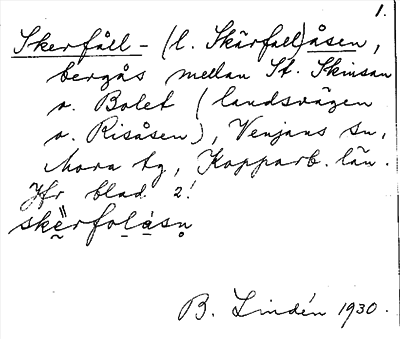 1.
Skerfåll- (l. Skärfall)åsen,
bergås mellan St. Skinsan
o. Bolet (landsvägen
o. Risåsen), Venjans sn,
Mora tg, Kopparb. län.
Jfr blad 2!
skërfolásn
B. Lindén 1930.